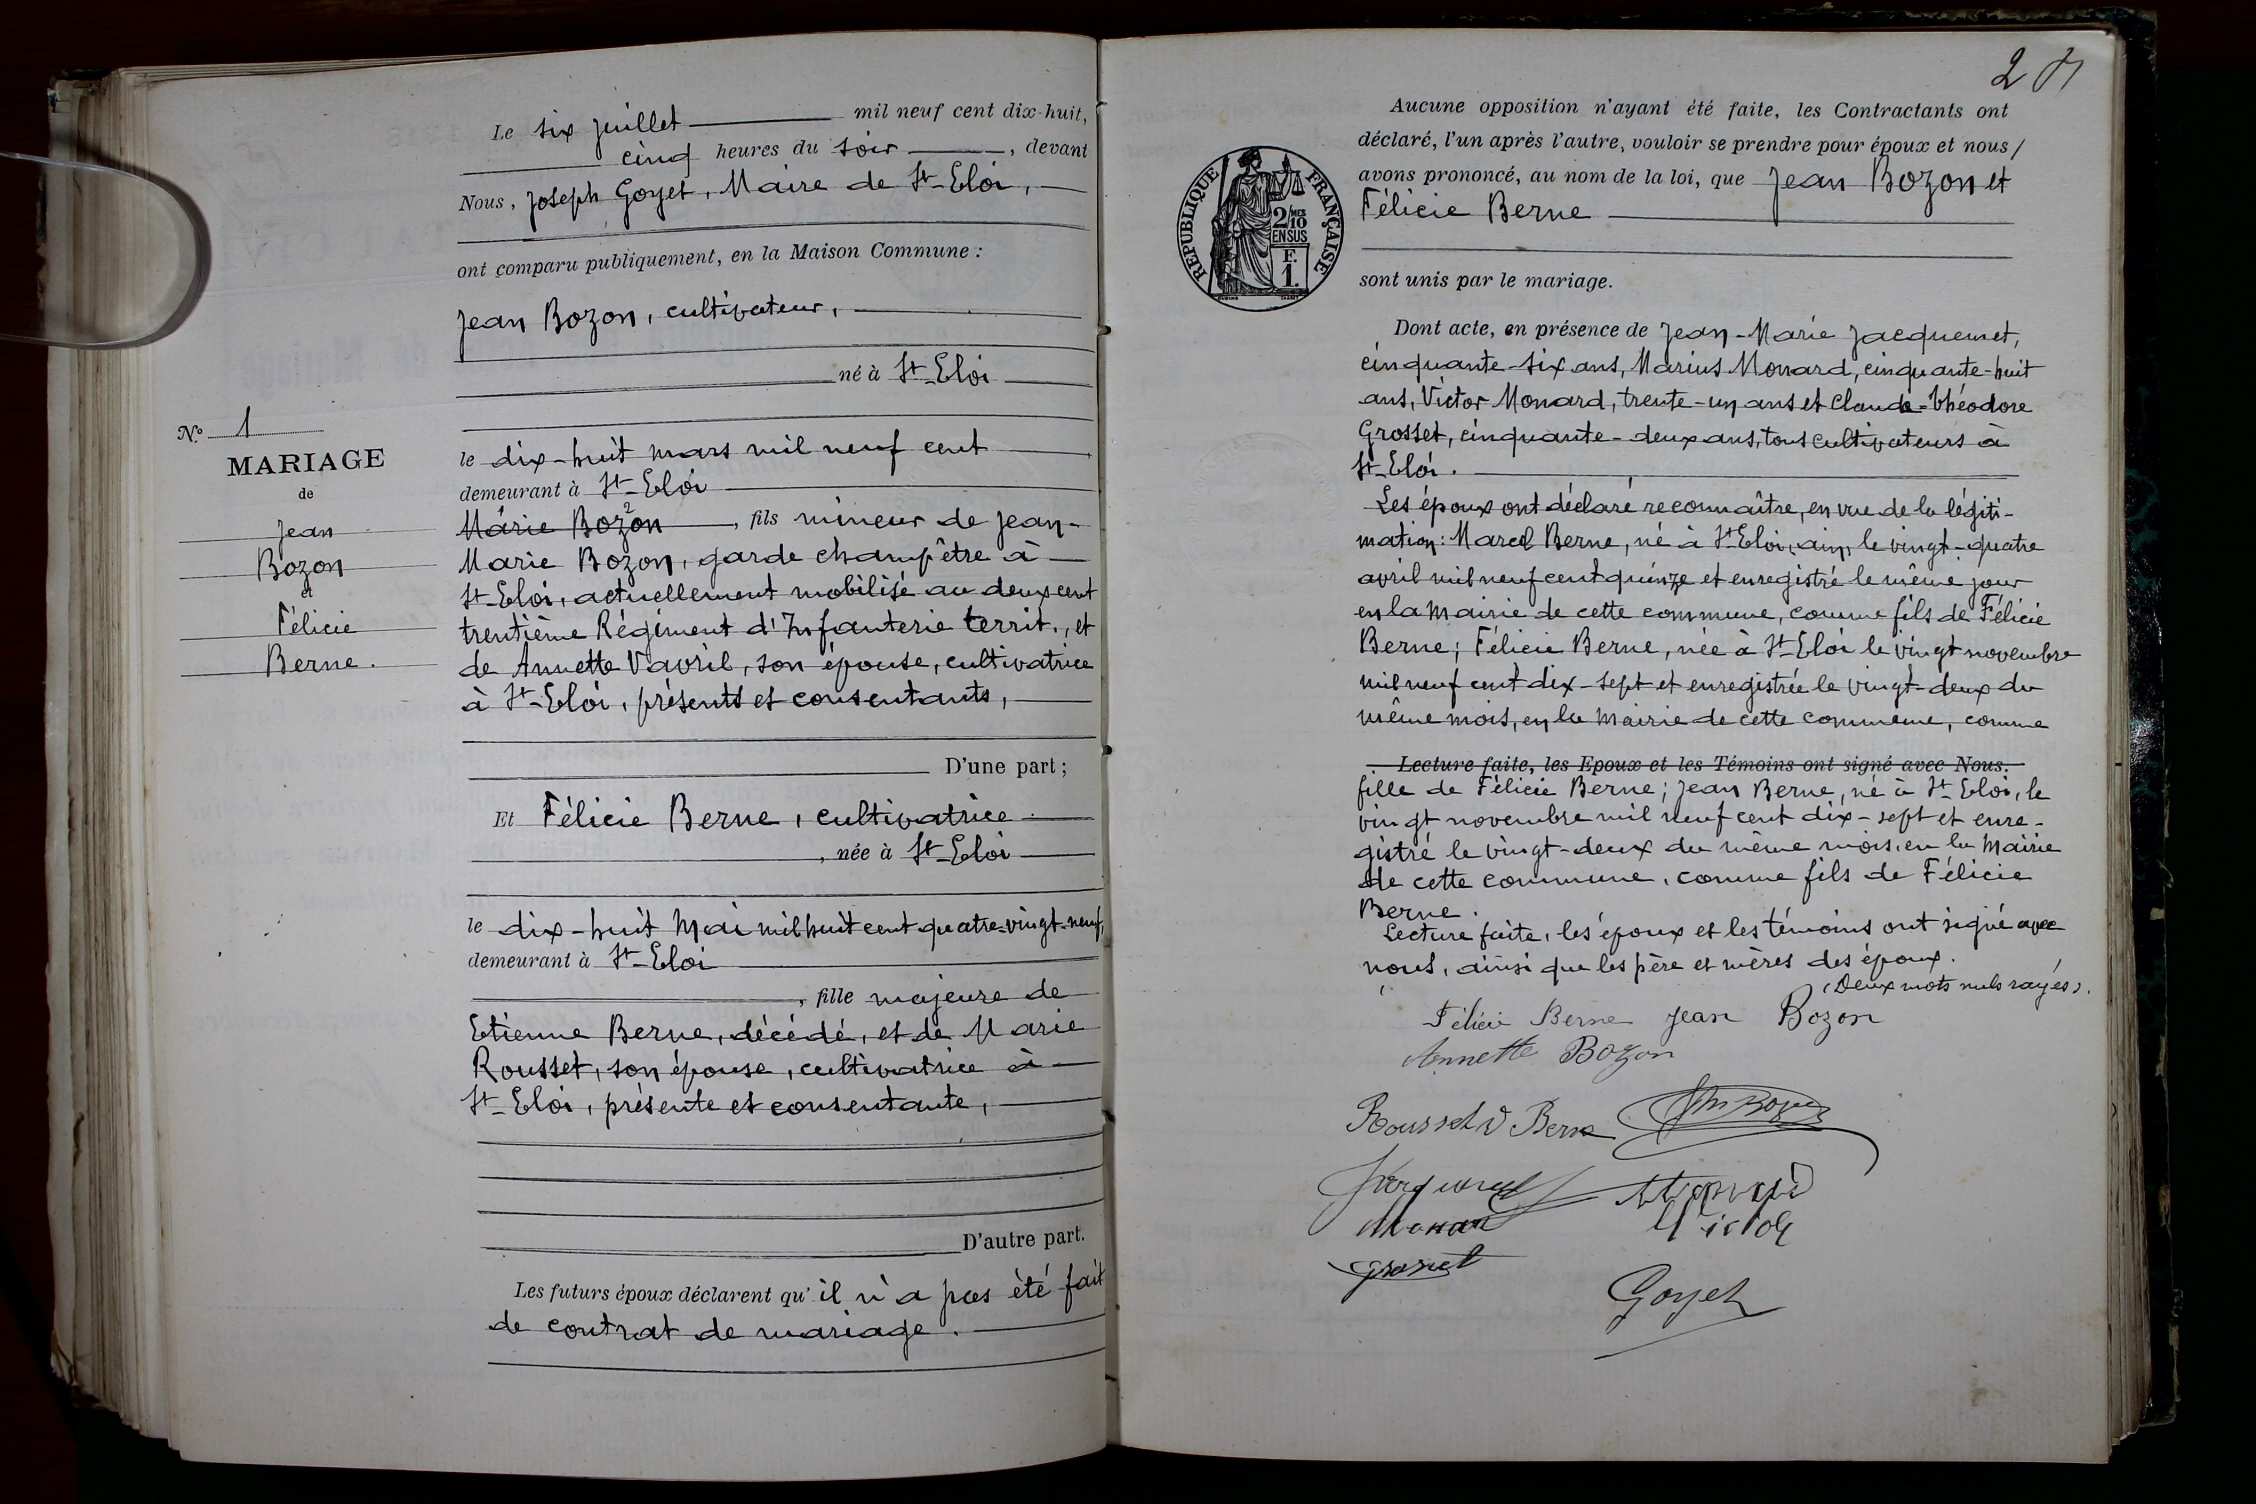 Le six juillet mil neuf cent dix-huit,
cinq heures du soir, devant
Nous, Joseph Goyet, Maire de St-Eloi,
ont comparu publiquement, en la Maison Commune :
Jean Bozon, cultivateur,
né à St-Eloi
N.º 1
MARIAGE
de
Jean
Bozon
et
Félicie
Berne.
le dix-huit mars mil neuf cent
demeurant à St-Eloi
Marie Bozon, fils mineur de Jean-
Marie Bozon, garde champêtre à
St-Eloi, actuellement mobilisé au deux cent
trentième Régiment d'Infanterie territ., et
de Annette Vavril, son épouse, cultivatrice
à St-Eloi, présents et consentants,
D'une part ;
Et Félicie Berne, cultivatrice
, née à St-Eloi
le dix-huit Mai mil huit cent quatre-vingt-neuf,
demeurant à St-Eloi
, fille majeure de
Etienne Berne, décédé, et de Marie
Rousset, son épouse, cultivatrice à
St-Eloi, présente et consentante,
D'autre part.
Les futurs époux déclarent qu'il n'a pas été fait
de contrat de mariage.
2
Aucune opposition n'ayant été faite, les Contractants ont
déclaré, l'un après l'autre, vouloir se prendre pour époux et nous
avons prononcé, au nom de la loi, que Jean Bozon et
Félicie Berne
RÉPUBLIQUE FRANÇAISE
2/10
MES
EN SUS
F.
1.
sont unis par le mariage.
Dont acte, en présence de Jean-Marie Jacquemet,
cinquante-six ans, Marius Monard, cinquante-huit
ans, Victor Monard, trente-un ans et Claude-Théodore
Grosset, cinquante-deux ans, tous cultivateurs à
St-Eloi.
Les époux ont déclaré reconnaître, en vue de la légiti-
mation : Marcel Berne, né à St-Eloi, ain, le vingt-quatre
avril mil neuf cent quinze et enregistré le même jour
en la mairie de cette commune, comme fils de Félicie
Berne ; Félicie Berne, née à St-Eloi le vingt novembre
mil neuf cent dix-sept et enregistrée le vingt-deux du
même mois, en la Mairie de cette commune, comme
Lecture faite, les Epoux et les Témoins ont signé avec Nous.
fille de Félicie Berne ; Jean Berne, né à St-Eloi, le
vingt novembre mil neuf cent dix-sept et enre-
gistré le vingt-deux du même mois, en la Mairie
de cette commune, comme fils de Félicie
Berne.
Lecture faite, les époux et les témoins ont signé avec
nous, ainsi que les père et mères des époux.
(Deux mots nuls rayés).
Félicie Berne Jean Bozon
Annette Bozon
Rousset V Berne
Jacquemet
Monard
Victor
Grosset
Goyet